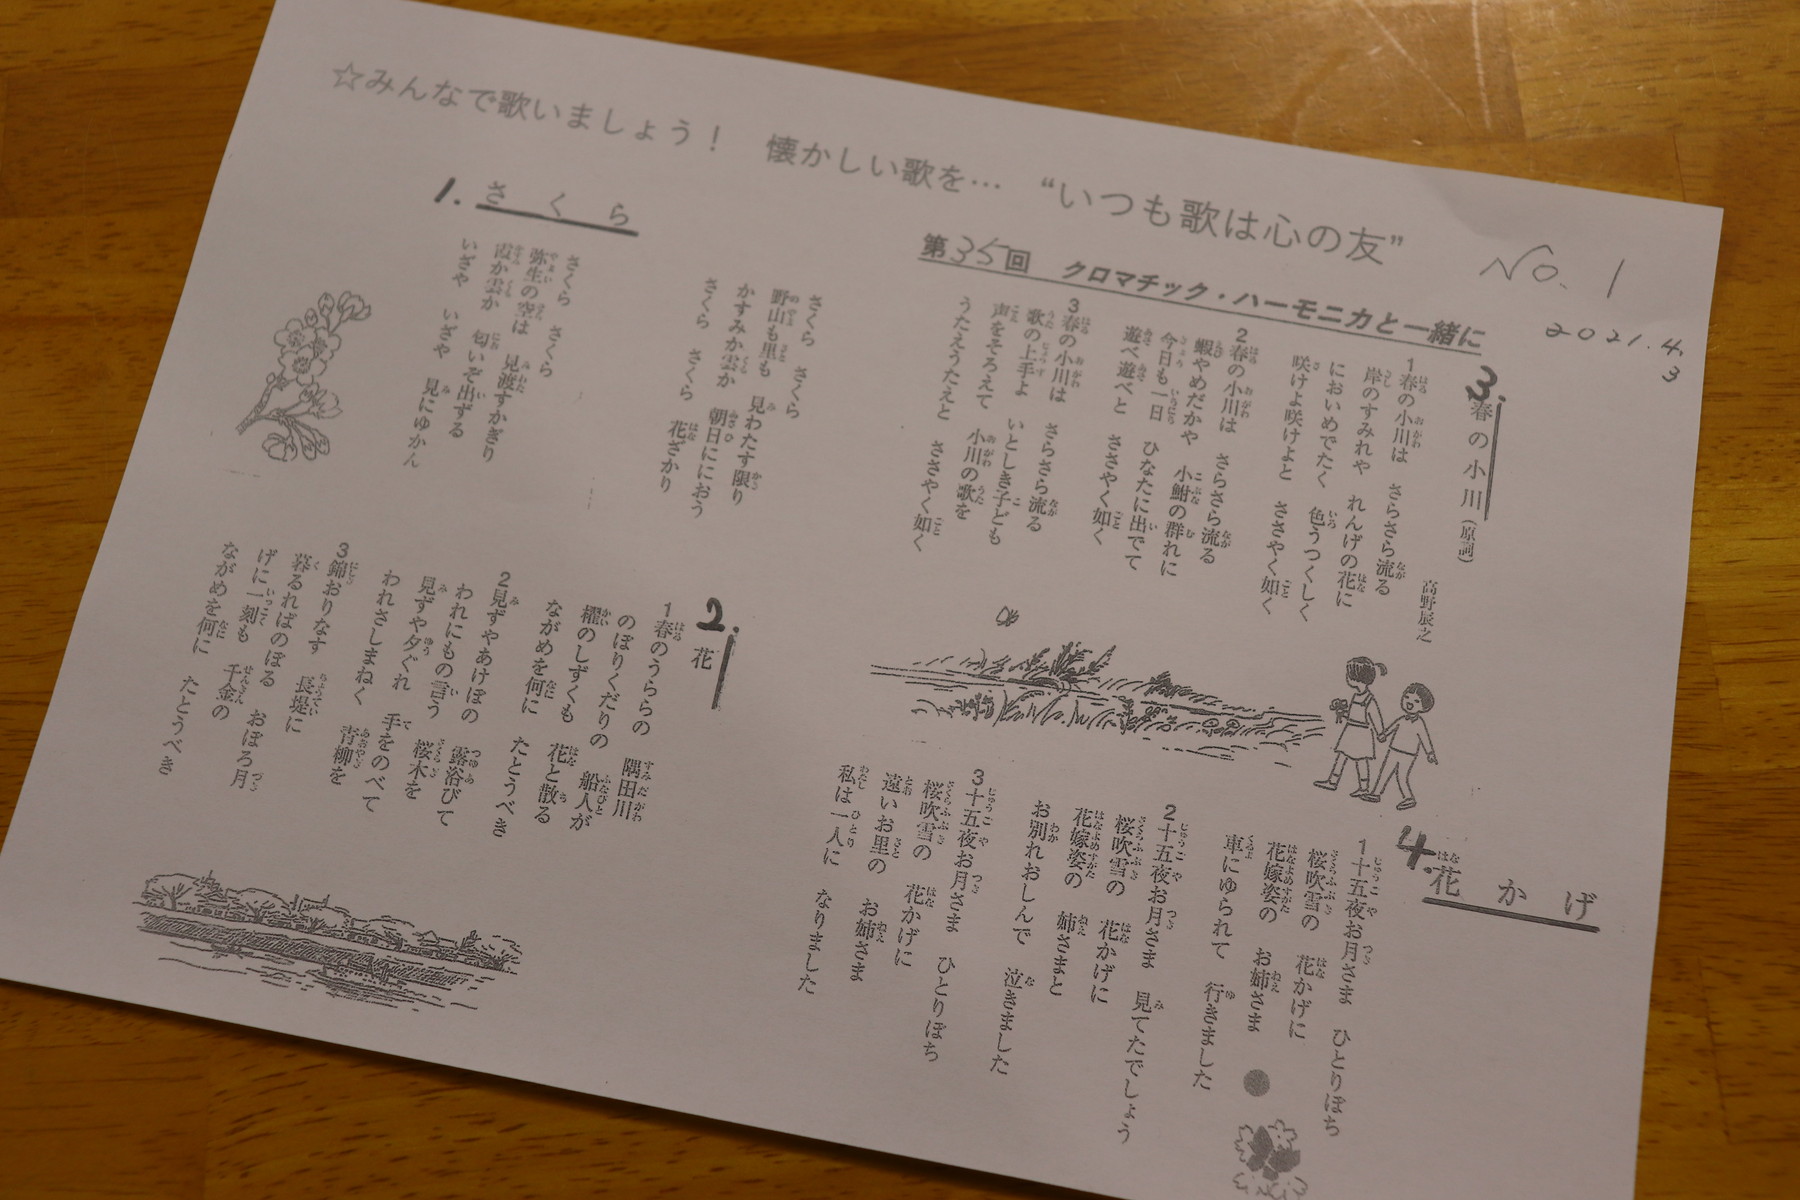 ☆みんなで歌いましょう！ 懐かしい歌を… “いつも歌は心の友”
No. 1
2021.4.3
第35回 クロマチック・ハーモニカと一緒に
1. さくら
さくら さくら
野山も里も 見わたす限り
かすみか雲か 朝日ににおう
さくら さくら 花ざかり
さくら さくら
弥生の空は 見渡すかぎり
霞か雲か 匂いぞ出ずる
いざや いざや 見にゆかん
2. 花
1 春のうららの 隅田川
のぼりくだりの 船人が
櫂のしずくも 花と散る
ながめを何に たとうべき
2 見ずやあけぼの 露浴びて
われにもの言う 桜木を
見ずや夕ぐれ 手をのべて
われさしまねく 青柳を
3 錦おりなす 長堤に
暮るればのぼる おぼろ月
げに一刻も 千金の
ながめを何に たとうべき
3. 春の小川（原詞）
高野辰之
1 春の小川は さらさら流る
岸のすみれや れんげの花に
においめでたく 色うつくしく
咲けよ咲けよと ささやく如く
2 春の小川は さらさら流る
蝦やめだかや 小鮒の群れに
今日も一日 ひなたに出でて
遊べ遊べと ささやく如く
3 春の小川は さらさら流る
歌の上手よ いとしき子ども
声をそろえて 小川の歌を
うたえうたえと ささやく如く
4. 花かげ
1 十五夜お月さま ひとりぼち
桜吹雪の 花かげに
花嫁姿の お姉さま
車にゆられて 行きました
2 十五夜お月さま 見てたでしょう
桜吹雪の 花かげに
花嫁姿の 姉さまと
お別れおしんで 泣きました
3 十五夜お月さま ひとりぼち
桜吹雪の 花かげに
遠いお里の お姉さま
私は一人に なりました